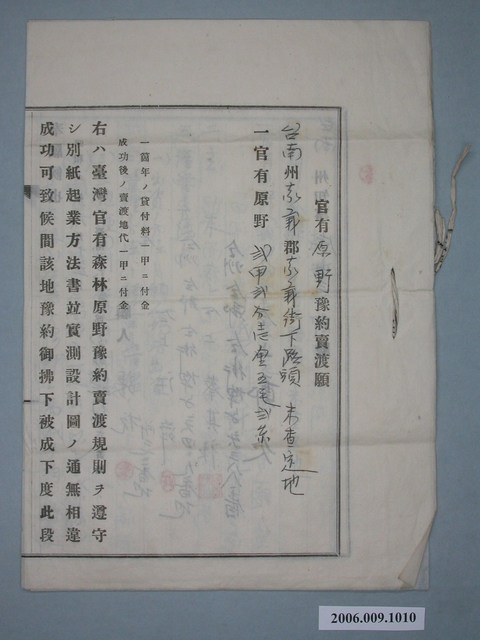 官有原野豫約賣渡願
台南州嘉義郡嘉義街下路頭 未查定地
一官有原野 弐甲弐分壱厘五毛弐糸
一箇年ノ貸付料一甲ニ付金
成功後ノ賣渡地代一甲ニ付金
右ハ臺灣官有森林原野豫約賣渡規則ヲ遵守
シ別紙起業方法書並實測設計圖ノ通無相違
成功可致候間該地豫約御拂下被成下度此段
2006.009.1010